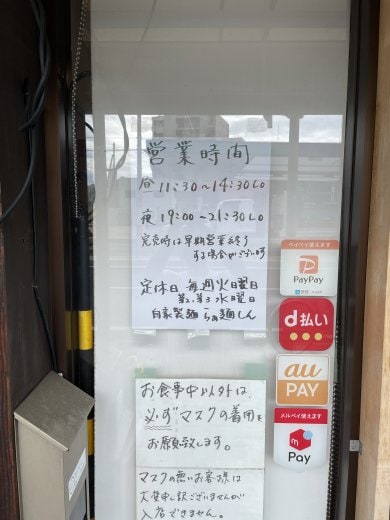 営業時間
昼 11:30〜14:30LO
夜 19:00〜21:30LO
完売時は早期営業終了
する場合がございます
定休日 毎週火曜日
第2、第3 水曜日
自家製麺 らぁ麺しん
お食事中以外は
必ずマスクの着用を
お願い致します。
マスクの無いお客様は
大変申し訳ございませんが
入店できません。
ペイペイ使えます
PayPay
d払い
au
PAY
メルペイ使えます
Pay